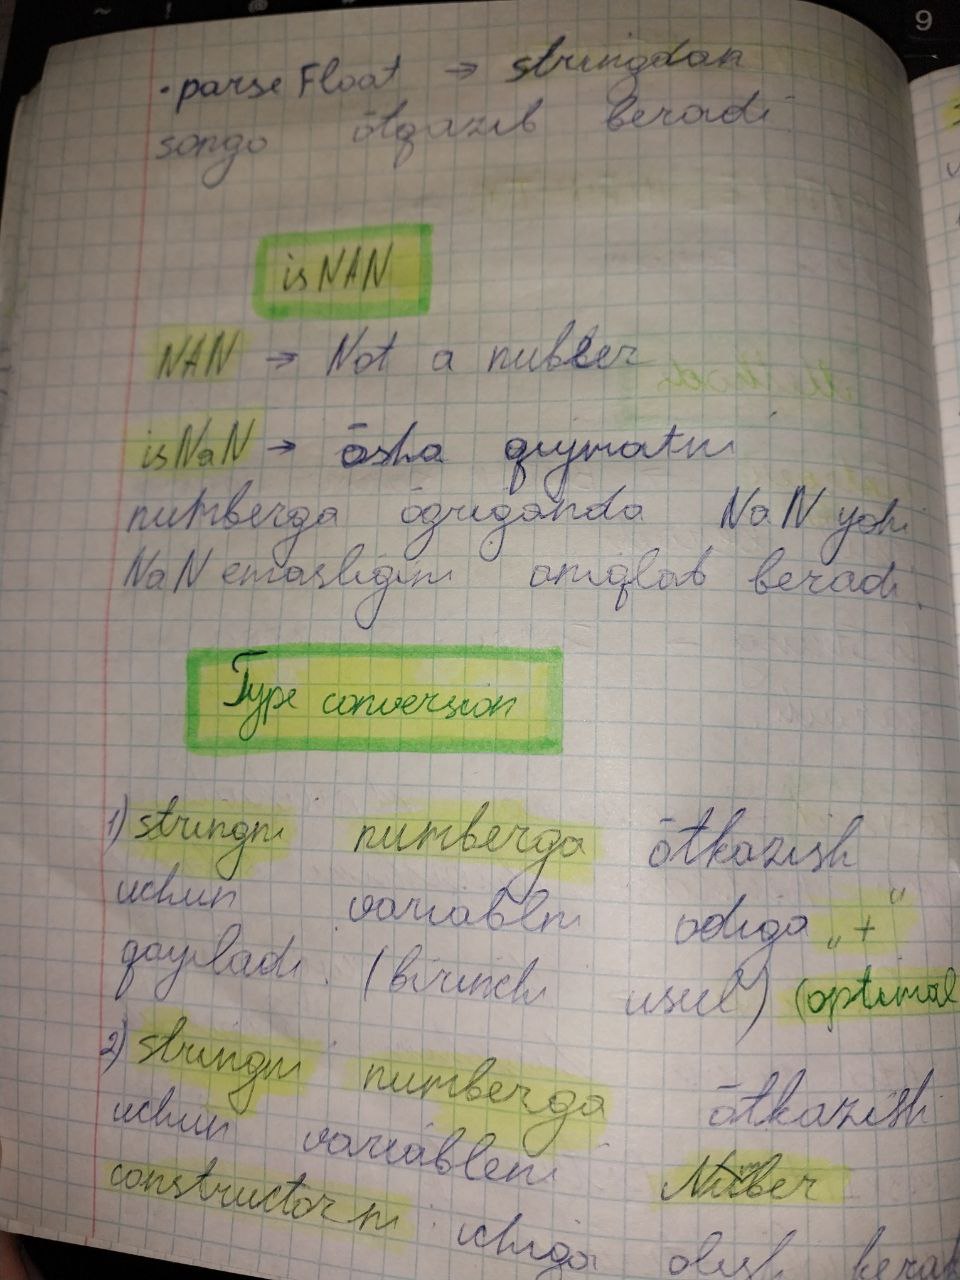 • parseFloat → stringdan
songa ōtqazib beradi
isNAN
NAN → Not a number
isNaN → ōsha qiymatni
numberga ōgirganda NaN yoki
NaN emasligini aniqlab beradi.
Type conversion
1) stringni numberga ōtkazish
uchun variableni oldiga „+"
qoyiladi. (birinchi usul) (optimal
2) stringni numberga ōtkazish
uchun variableni Number
constructorni ichiga olish kerak
9